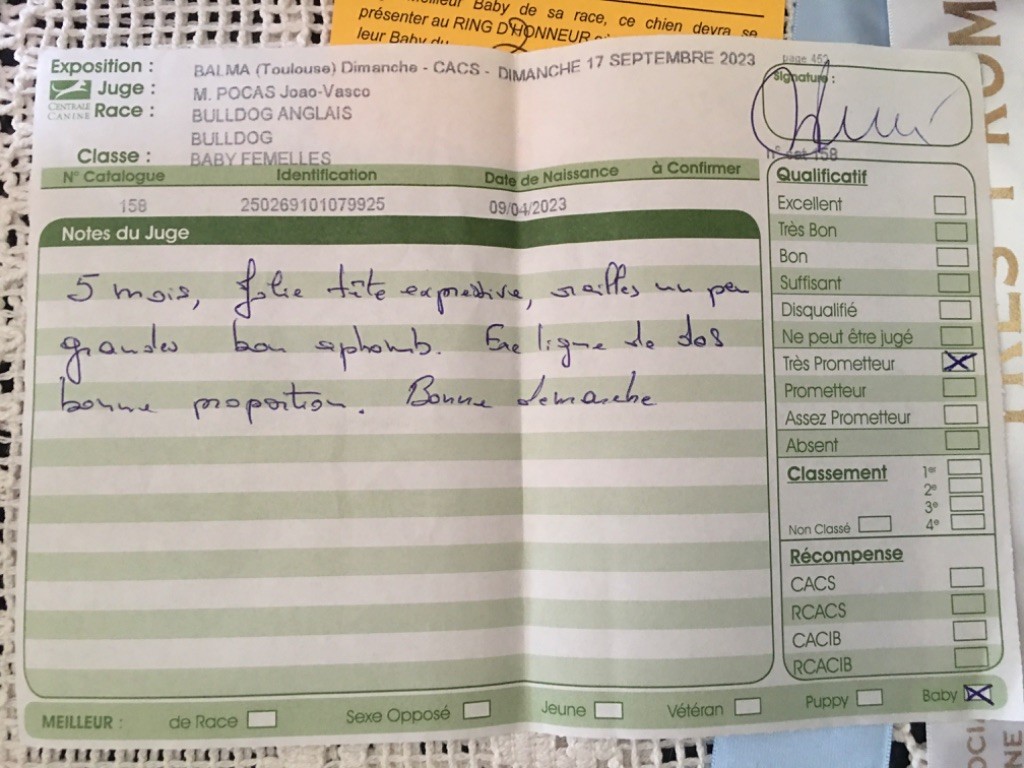 Meilleur Baby de sa race, ce chien devra se
présenter au RING D'HONNEUR
leur Baby du
Exposition : BALMA (Toulouse) Dimanche - CACS - DIMANCHE 17 SEPTEMBRE 2023
page 452
Signature :
Juge : M. POCAS Joao-Vasco
CENTRALE
CANINE
Race : BULLDOG ANGLAIS
BULLDOG
Classe : BABY FEMELLES
n° cat 158
N° Catalogue Identification Date de Naissance à Confirmer
158 250269101079925 09/04/2023
Notes du Juge
5 mois, jolie tête expressive, oreilles un peu
grandes bon aphomb. ligne de dos
bonne proportion. Bonne demarche
Qualificatif
Excellent
Très Bon
Bon
Suffisant
Disqualifié
Ne peut être jugé
Très Prometteur
Prometteur
Assez Prometteur
Absent
Classement 1er
2e
3e
Non Classé 4e
Récompense
CACS
RCACS
CACIB
RCACIB
MEILLEUR : de Race Sexe Opposé Jeune Vétéran Puppy Baby